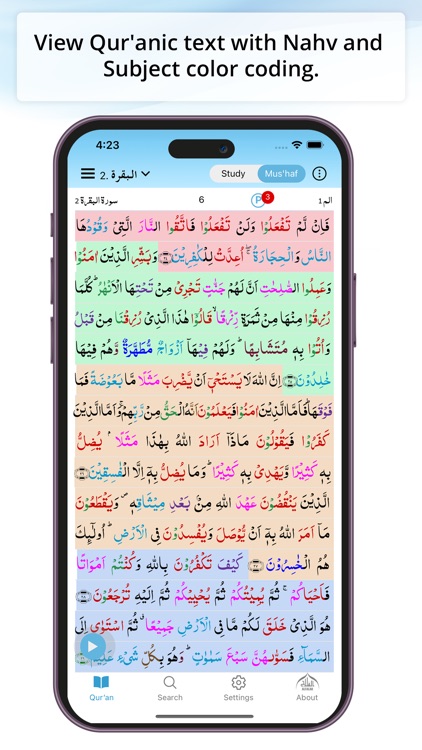 View Qur'anic text with Nahv and
Subject color coding.
4:23
2. البقرة
Study
Mus'haf
سورة البقرة 2
6
P
3
الم 1
فَاِنْ لَّمْ تَفْعَلُوْا وَلَنْ تَفْعَلُوْا فَاتَّقُوا النَّارَ الَّتِيْ وَقُوْدُهَا
النَّاسُ وَالْحِجَارَةُ ۖ اُعِدَّتْ لِلْكٰفِرِيْنَ ﴿٢٤﴾ وَبَشِّرِ الَّذِيْنَ اٰمَنُوْا
وَعَمِلُوا الصّٰلِحٰتِ اَنَّ لَهُمْ جَنّٰتٍ تَجْرِيْ مِنْ تَحْتِهَا الْاَنْهٰرُ ؕ كُلَّمَا
رُزِقُوْا مِنْهَا مِنْ ثَمَرَةٍ رِّزْقًا ۙ قَالُوْا هٰذَا الَّذِيْ رُزِقْنَا مِنْ قَبْلُ
وَاُتُوْا بِهٖ مُتَشَابِهًا ؕ وَلَهُمْ فِيْهَاۤ اَزْوَاجٌ مُّطَهَّرَةٌ ۙ وَّهُمْ فِيْهَا
خٰلِدُوْنَ ﴿٢٥﴾ اِنَّ اللّٰهَ لَا يَسْتَحْيٖۤ اَنْ يَّضْرِبَ مَثَلًا مَّا بَعُوْضَةً فَمَا
فَوْقَهَا ؕ فَاَمَّا الَّذِيْنَ اٰمَنُوْا فَيَعْلَمُوْنَ اَنَّهُ الْحَقُّ مِنْ رَّبِّهِمْ ۚ وَاَمَّا الَّذِيْنَ
كَفَرُوْا فَيَقُوْلُوْنَ مَاذَاۤ اَرَادَ اللّٰهُ بِهٰذَا مَثَلًا ۘ يُضِلُّ
بِهٖ كَثِيْرًا ۙ وَّيَهْدِيْ بِهٖ كَثِيْرًا ؕ وَمَا يُضِلُّ بِهٖۤ اِلَّا الْفٰسِقِيْنَ ﴿٢٦﴾
الَّذِيْنَ يَنْقُضُوْنَ عَهْدَ اللّٰهِ مِنْۢ بَعْدِ مِيْثَاقِهٖ ۪ وَيَقْطَعُوْنَ
مَاۤ اَمَرَ اللّٰهُ بِهٖۤ اَنْ يُّوْصَلَ وَيُفْسِدُوْنَ فِي الْاَرْضِ ؕ اُولٰٓئِكَ
هُمُ الْخٰسِرُوْنَ ﴿٢٧﴾ كَيْفَ تَكْفُرُوْنَ بِاللّٰهِ وَكُنْتُمْ اَمْوَاتًا
فَاَحْيَاكُمْ ۚ ثُمَّ يُمِيْتُكُمْ ثُمَّ يُحْيِيْكُمْ ثُمَّ اِلَيْهِ تُرْجَعُوْنَ ﴿٢٨﴾
هُوَ الَّذِيْ خَلَقَ لَكُمْ مَّا فِي الْاَرْضِ جَمِيْعًا ۗ ثُمَّ اسْتَوٰۤى اِلَى
السَّمَآءِ فَسَوّٰىهُنَّ سَبْعَ سَمٰوٰتٍ ؕ وَهُوَ بِكُلِّ شَيْءٍ عَلِيْمٌ ﴿٢٩﴾
Qur'an
Search
Settings
About